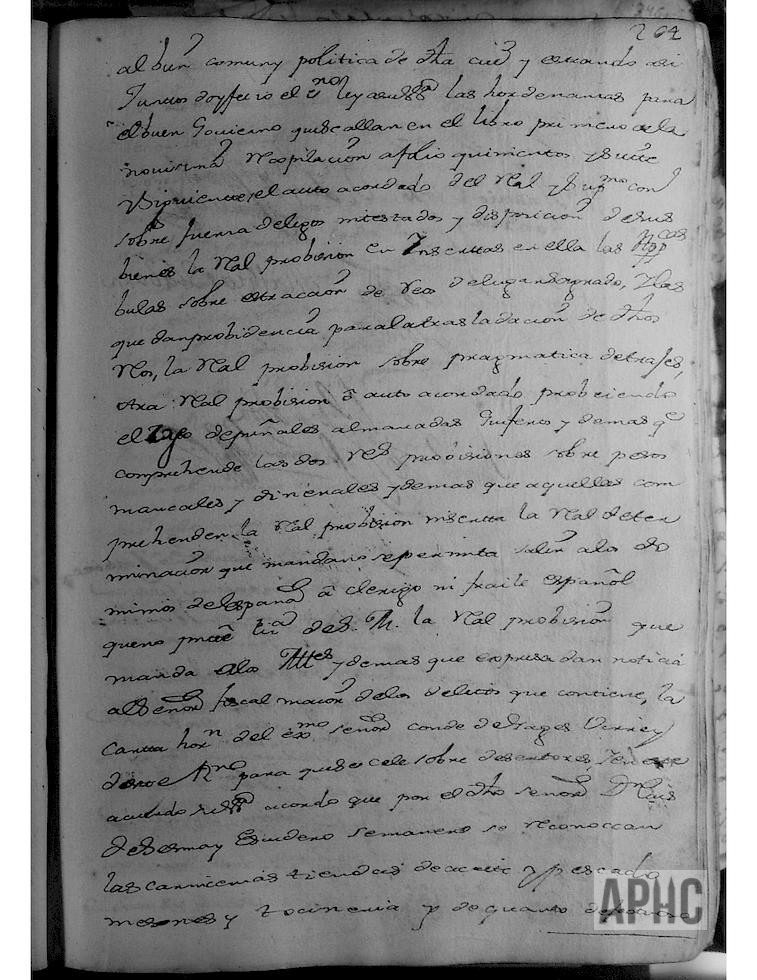 264
al buen comun y politica de dha ciud y estando asi
Juntos doy fee io el essno ley a su ssa las hordenanzas para
el buen Govierno que se allan en el libro primero de la
novisima Recopilacion a folio quinientos y siete
y siguiente, el auto acordado del Real y Supmo conso
sobre fuerza de legos intestados y disposicion de sus
bienes la Real probision en Insertas en ella las App cas
bulas sobre estraccion de Reos de lugar sagrado, y las
que dan probidencia para la trasladacion de dhos
Reos, la Real probision sobre pragmatica de trajes,
otra Real probision o auto acordado prohiviendo
el uso de puñales almaradas Jiferos y demas qe
comprehende las dos Res probisiones sobre pesos
marcales y dinerales y demas que aquellas com
prehenden la Real probision inserta la Real deter
minacion que mandano se permita salir a los do
minios de España a clerigo ni fraile español
que no presente liza de S. M. la Real probision que
manda a los Alldes y demas que expresa dan noticia
al Señor fiscal maior de los delitos que contiene, la
carta horn del exmo señor conde de Gages Virrey
de este Rno para que se cele sobre desertores
acordo que por el dho señor Dn Luis
de Sesma y Escudero semanero se reconozcan
las carnicerias tiendas de aceite y pescado
mesones y tocineria y de quanto
APHC